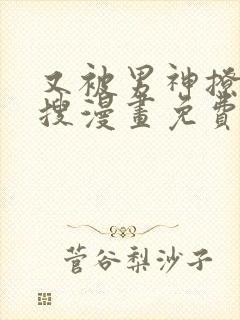 又被男神撩
搜漫畫免費
菅谷梨沙子